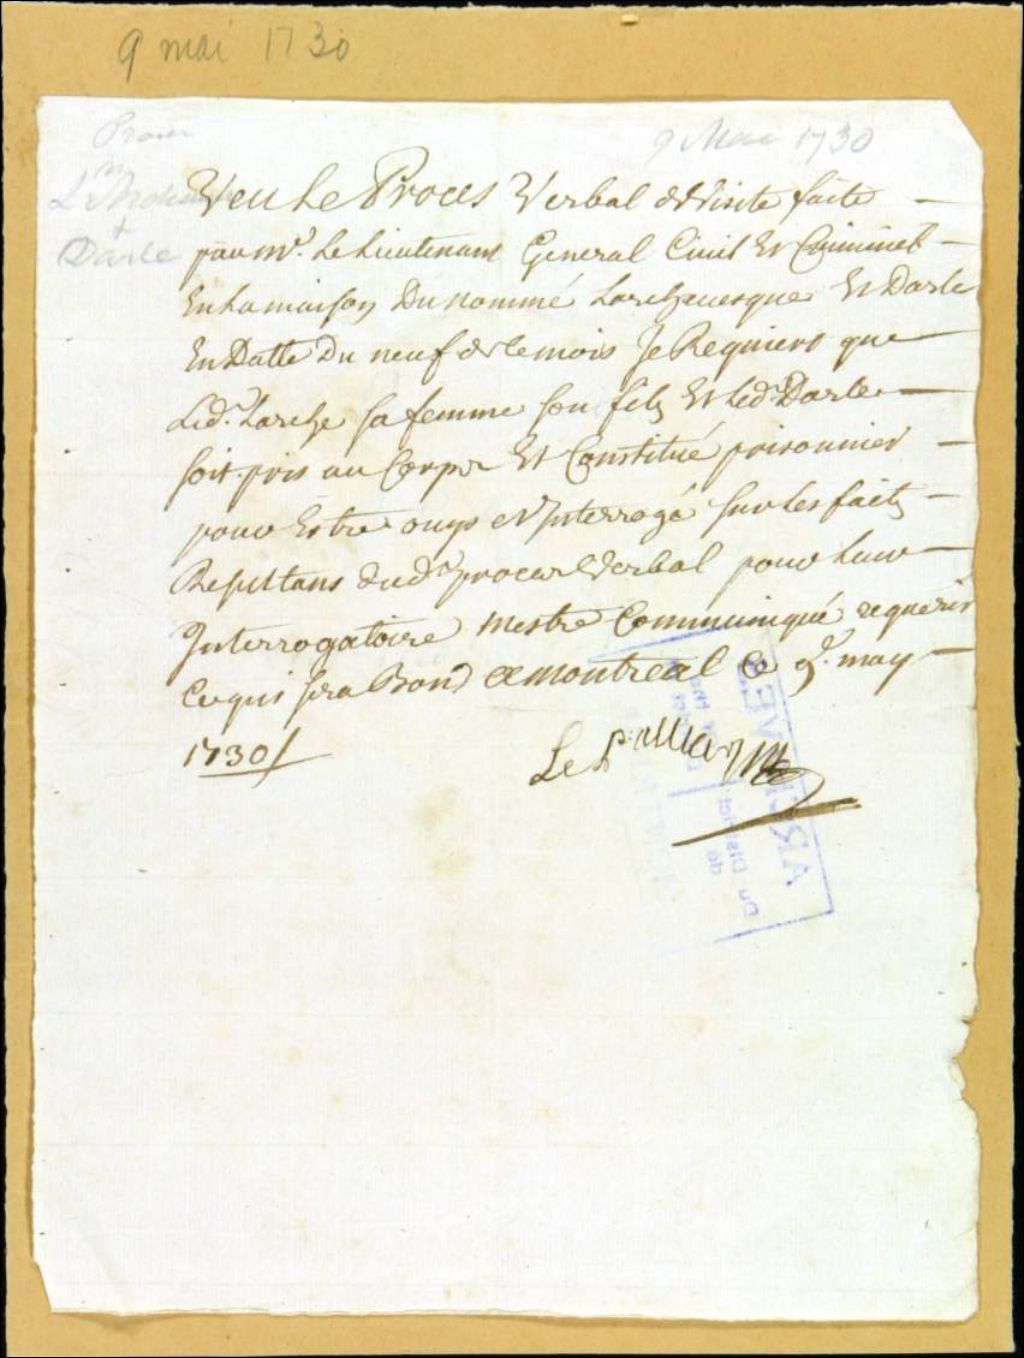 9 mai 1730
9 Mai 1730
Darle
Veu Le Proces Verbal de Visite faite
par mr. Le Lieutenant General Civil Et Criminel
En La maison Du nommé Larchevesque Et Darle
En Datte Du neuf de ce mois Je Requiers que
Led. Larche sa femme son filz Et led. Darle
soit pris au Corps Et Constitué prisonnier
pour Estre ouys et Interrogé sur les faits
Resultans dud. procez Verbal pour Leur
Interrogatoire mestre Communiqué requerir
Ce qui sera Bon a montreal Ce 9e. may
1730
ARCHIVES
Du District
de